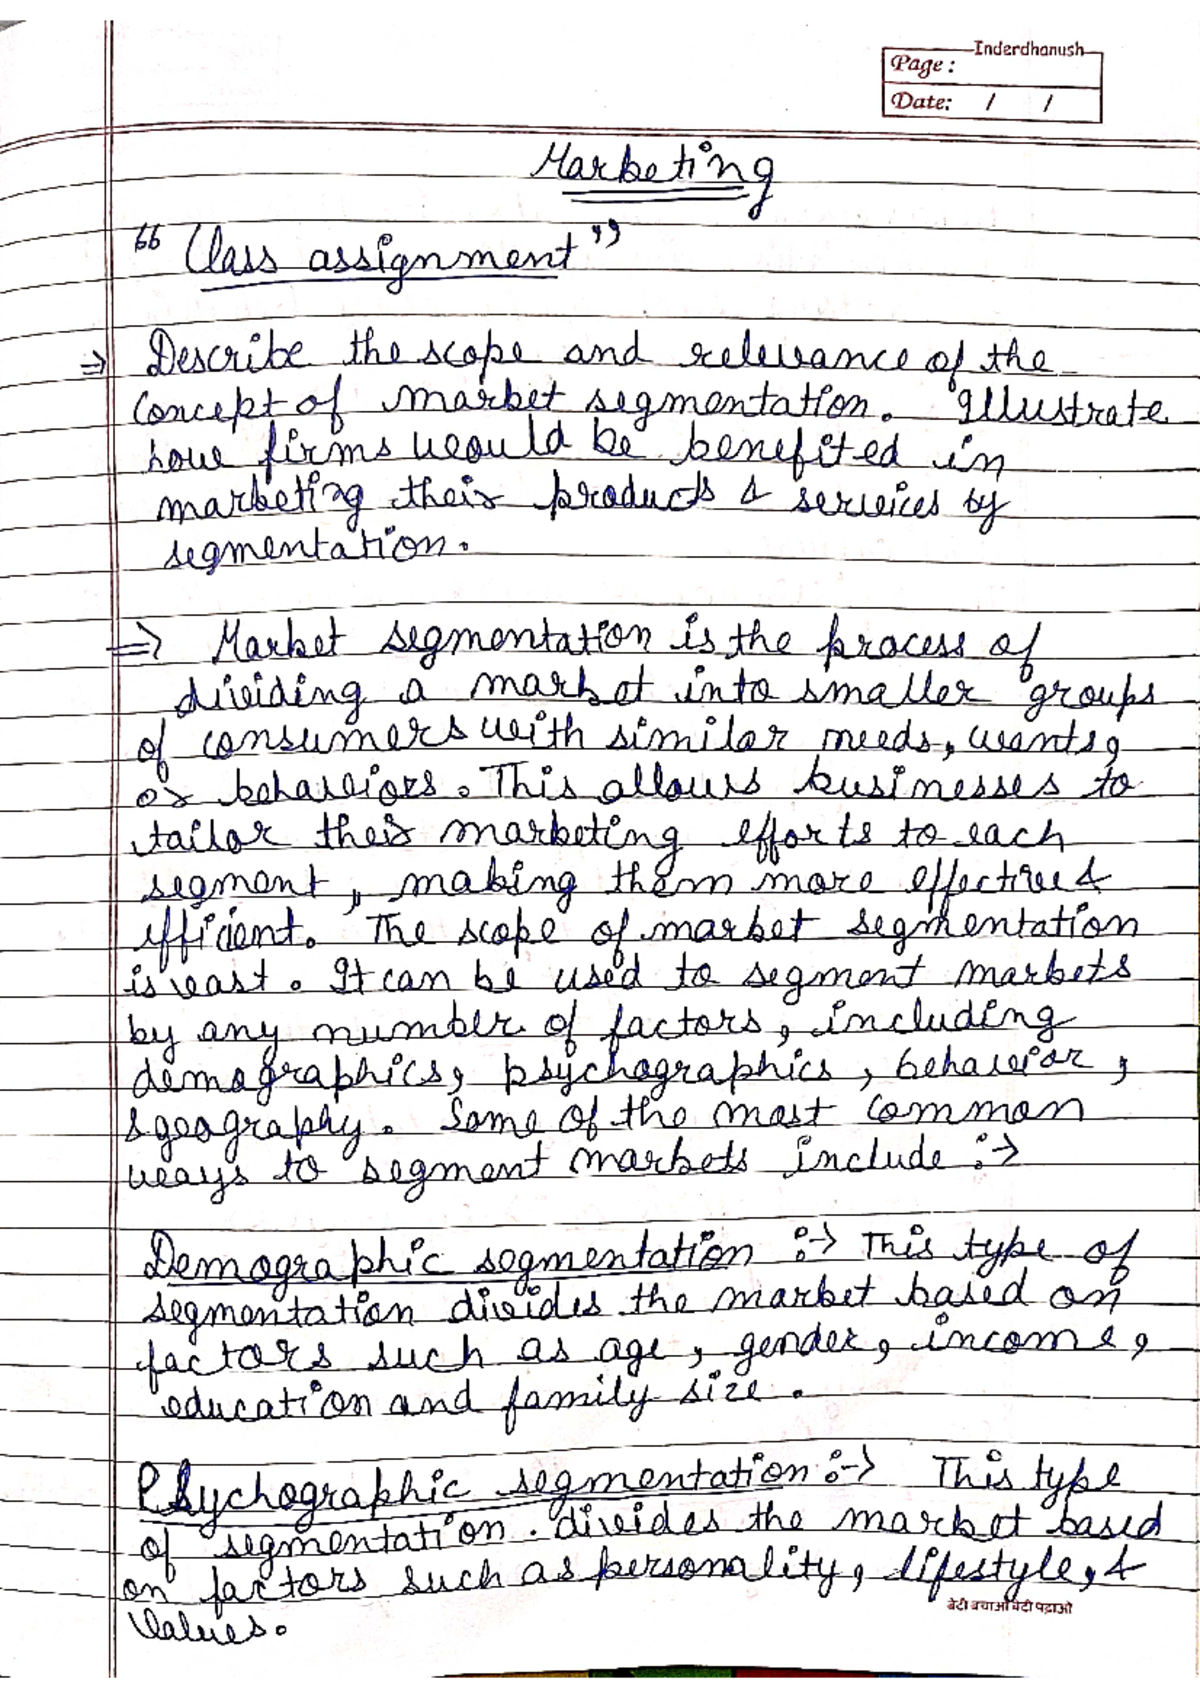 Inderdhanush
Page :
Date: / /
Marketing
"Class assignment"
⇒ Describe the scope and relevance of the
concept of market segmentation. Illustrate
how firms would be benefited in
marketing their products & services by
segmentation.
⇒ Market segmentation is the process of
dividing a market into smaller groups
of consumers with similar needs, wants,
or behaviors. This allows businesses to
tailor their marketing efforts to each
segment, making them more effective &
efficient. The scope of market segmentation
is vast. It can be used to segment markets
by any number of factors, including
demographics, psychographics, behavior,
& geography. Some of the most common
ways to segment markets include :→
Demographic segmentation :→ This type of
segmentation divides the market based on
factors such as age, gender, income,
education and family size.
Psychographic segmentation :→ This type
of segmentation. divides the market based
on factors such as personality, lifestyle, &
Values.
बेटी बचाओ बेटी पढ़ाओ